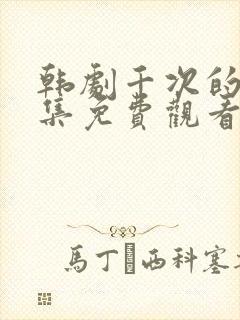 韩劇千次的
集免費觀看
馬丁�西科塞